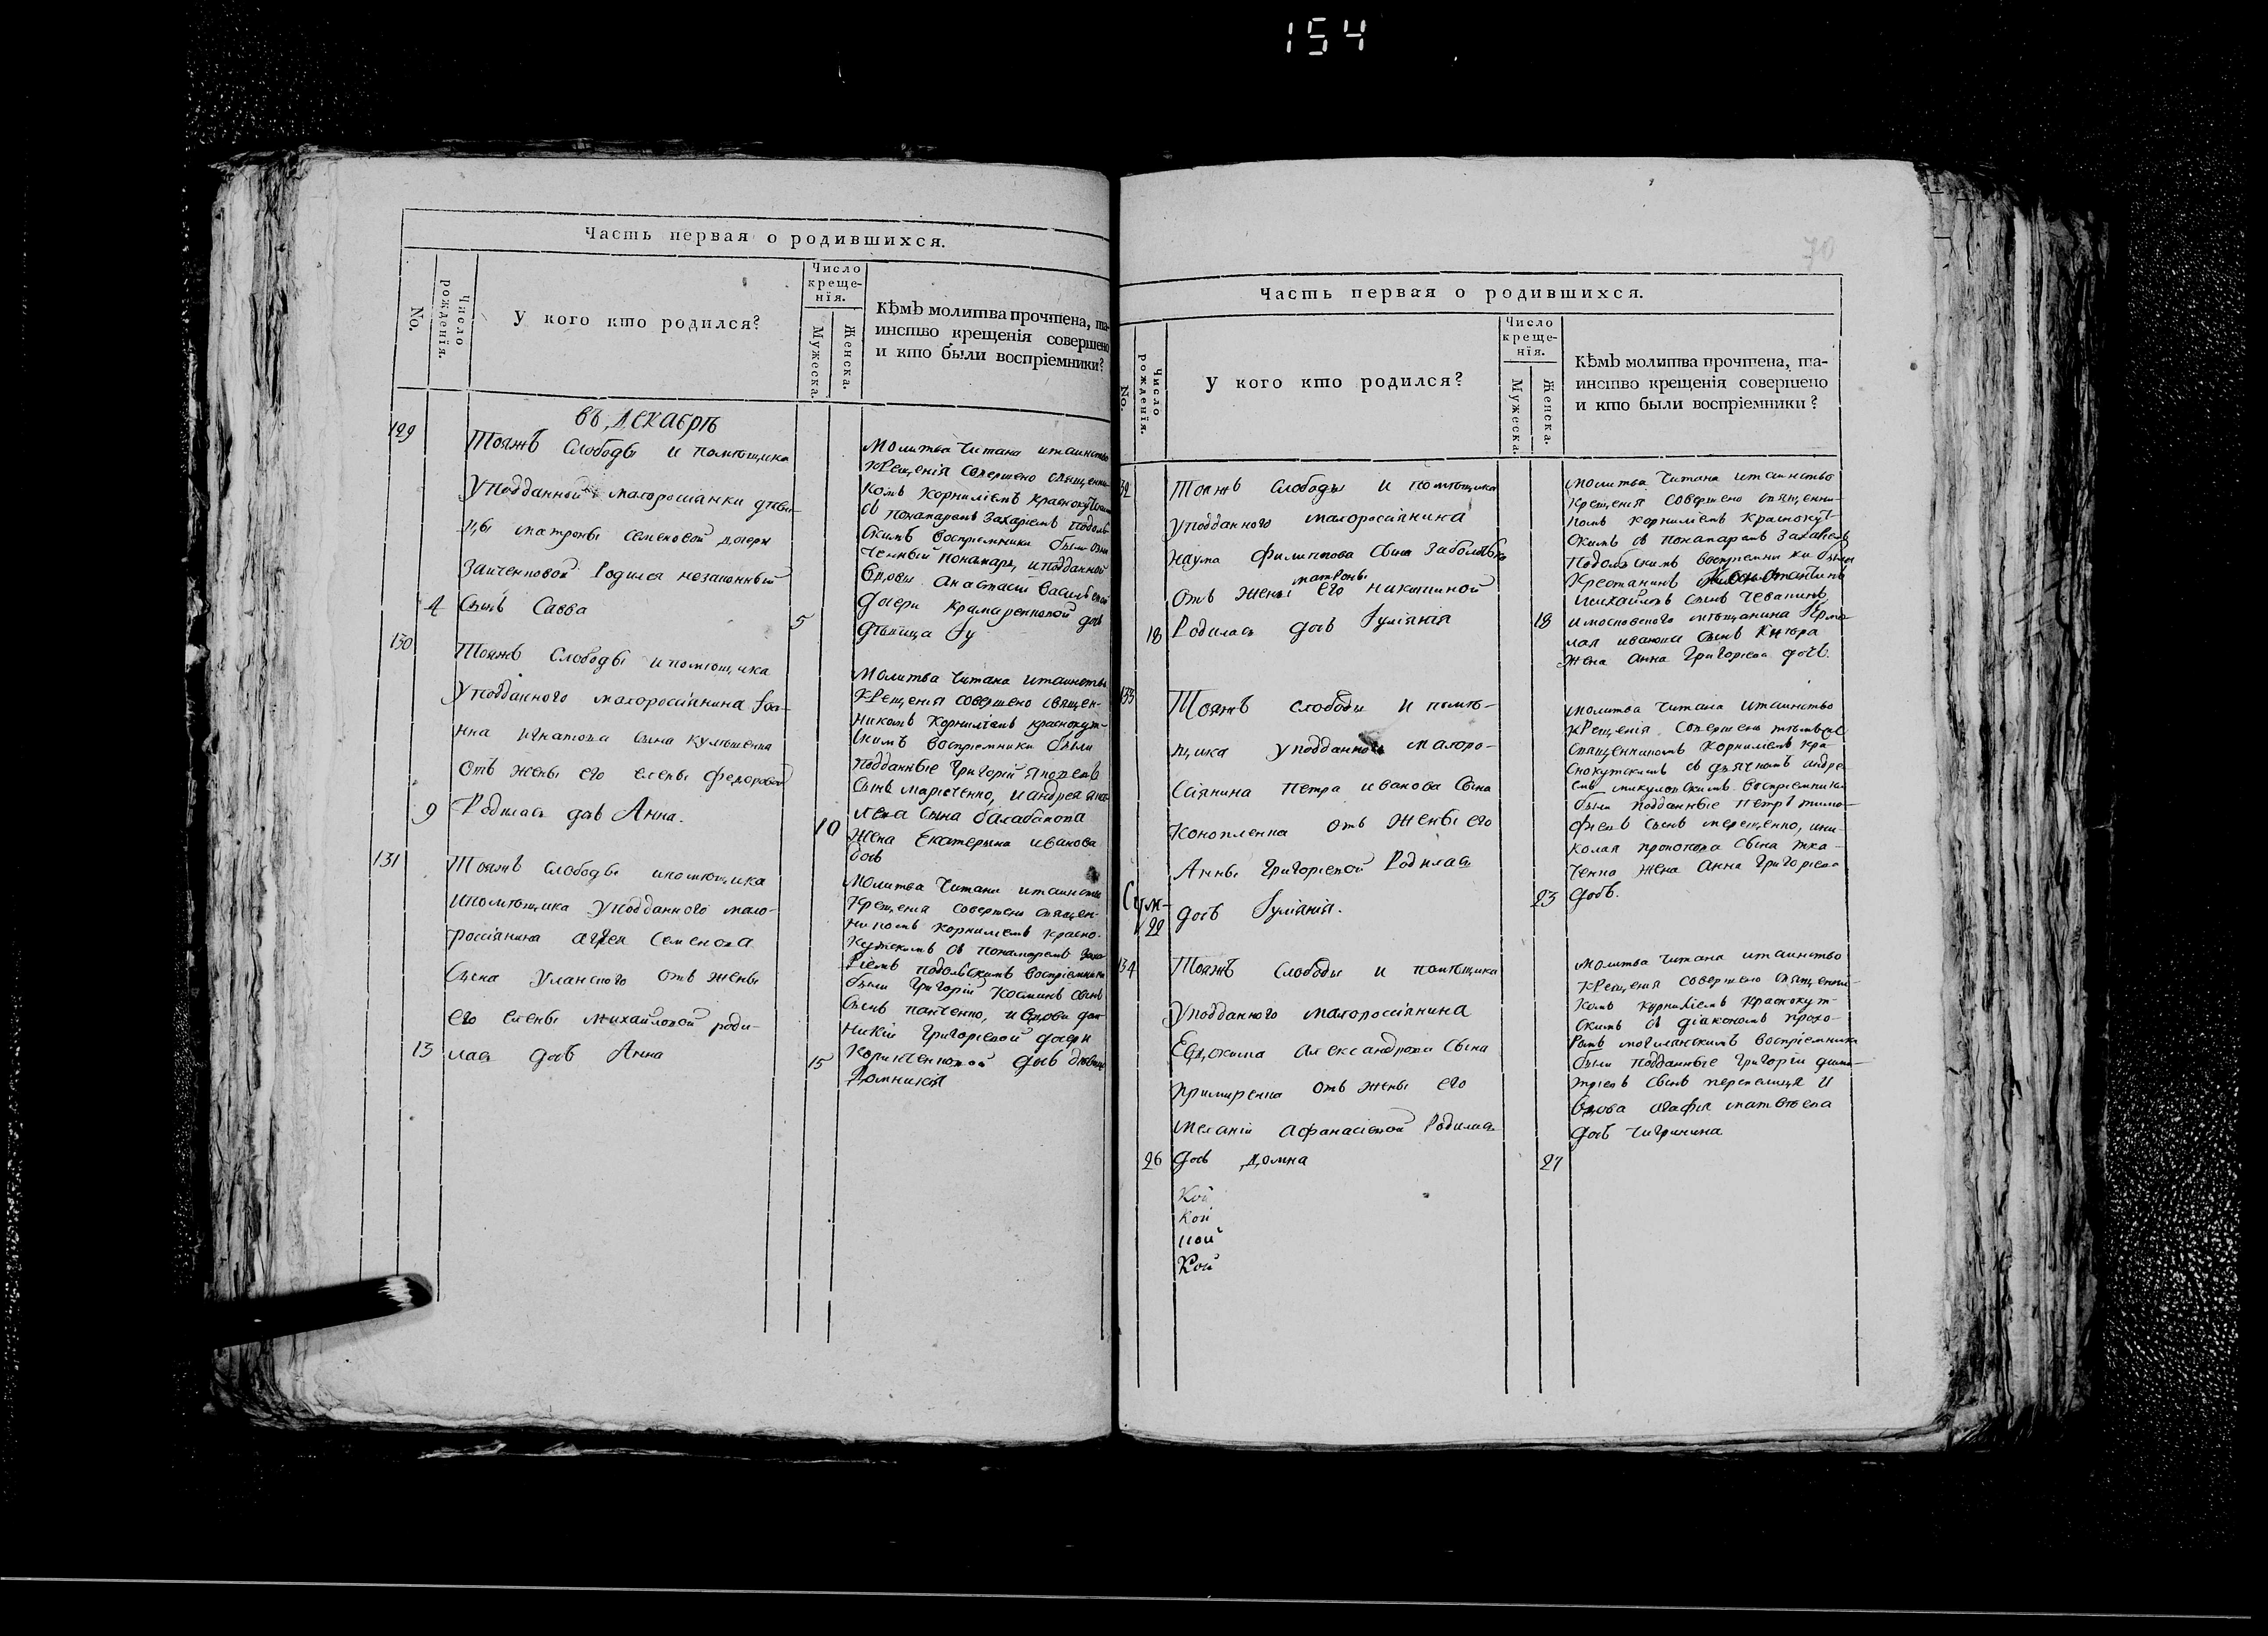 154
Часть первая о родившихся.
No.
Число рожденїя.
У кого кто родился?
Число креще-нїя.
Мужеска.
Женска.
Кѣмъ молитва прочтена, та-
инство крещенія совершено
и кто были воспріемники?
въ декабрѣ
129
Тояжъ Слободы и помѣщика
у подданной малоросіянки дѣви-
цы матроны семеновой дочери
Заиченковой Родился незаконный
4
Сынъ Савва
5
Молитва Читана итаинство
крещенія совершено священни-
комъ Корниліемъ краснокутским
съ понамаремъ Захаріемъ подоль-
скимъ воспріемники были
понамарь, и подданной
Вдовы Анастасіи Васильевой
дочери Крамаренковой дочь
дѣвица
130
Тояжъ Слободы и помѣщика
у подданного малоросіянина Іоа-
нна Игнатова сына Кулѣшенка
отъ жены его елены федоровой
9
Родилась дочь Анна.
10
Молитва Читана итаинство
Крещенія совершено священ-
никомъ Корниліемъ краснокут-
скимъ воспріемники были
подданные Григорій
Сынъ Марѣченко, и андрея
сына балабанова
Жена Екатерына иванова
дочь
131
Тояжъ Слободы ипомѣщика
ипомѣщика у подданного мало-
россіянина агѣя Семенова
Сына Уланского отъ жены
его елены михайловой роди-
13
лась дочь Анна
15
Молитва Читана итаинство
Крещенія совершено священ-
никомъ корниліемъ красно-
кутскимъ съ понамаремъ заха-
ріемъ подольскимъ воспріемники
были Григорій Косминъ сынъ
Сынъ панченко, и вдовы
Григоріевой дочери
дочь дѣвица
Домникія
70
Часть первая о родившихся.
No.
Число рожденїя.
У кого кто родился?
Число креще-нїя.
Мужеска.
Женска.
Кѣмъ молитва прочтена, та-
инство крещенія совершено
и кто были воспріемники?
132
Тояжъ Слободы и помѣщика
у подданного малоросіянина
наума филиппова сына
матроны
отъ жены его никитиной
18
Родилась дочь Іуліянія
18
молитва Читана итаинство
крещенія совершено священни-
комъ корниліемъ краснокут-
скимъ съ понамаремъ Захаріемъ
Подольскимъ воспріемники были
Крестянинъ
Михайловъ сынъ
и московского мѣщанина Ермо-
лая иванова сына
жена анна Григоріева дочь.
133
Тояжъ слободы и помѣ-
щика у подданного малоро-
сіянина петра иванова сына
Конопленка отъ жены его
Анны Григоріевой Родилась
22
дочь Іуліянія.
23
молитва Читана итаинство
крещенія совершено тѣмъже
священникомъ корниліемъ кра-
снокутскимъ съ дьячкомъ андре-
емъ микуловскимъ воспріемники
были подданные петръ тимо-
фіевъ сынъ терещенко, ини-
колая прокопова сына тка-
ченка жена анна Григоріева
дочь.
134
Тояжъ слободы и помѣщика
у подданного малороссіянина
Евдокима александрова сына
Примиренка отъ жены его
меланіи афанасіевой Родилась
26
дочь домна
27
молитва читана итаинство
крещенія совершено священни-
комъ корниліемъ краснокут-
скимъ съ діакономъ прохо-
ромъ могилянскимъ воспріемники
были подданные Григорій дими-
тріевъ сынъ перепелиця и
вдова агафія матвѣева
дочь чигринина
Кой
Кой
ной
Кой